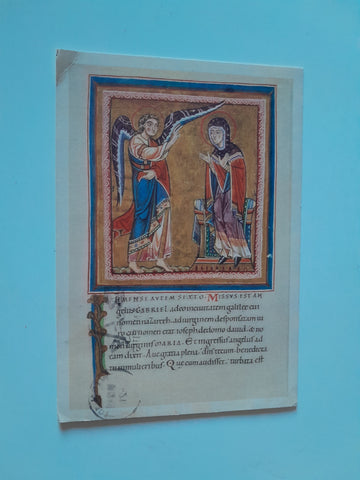 IN MENSE AVTEM SEXTO. MISSVS EST AN
gelus GABRIEL a deo in civitatem galileę cui
nomen nazareth. ad virginem desponsatam vi
ro cui nomen erat ioseph de domo david. et no
men virginis MARIA. Et ingressus angelus ad
eam dixit. Ave gratia plena. dns tecum. benedicta
tu in mulieribus. Que cum audisset. turbata est